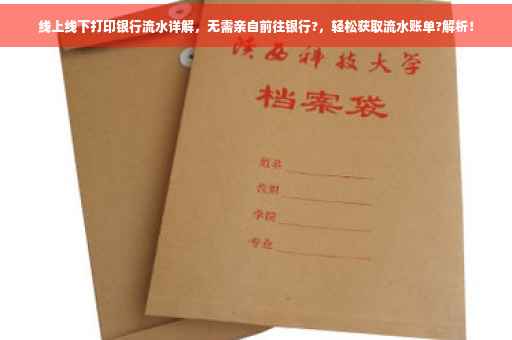 线上线下打印银行流水详解，无需亲自前往银行?，轻松获取流水账单?解析！
陕西科技大学
档案袋
学院
专业